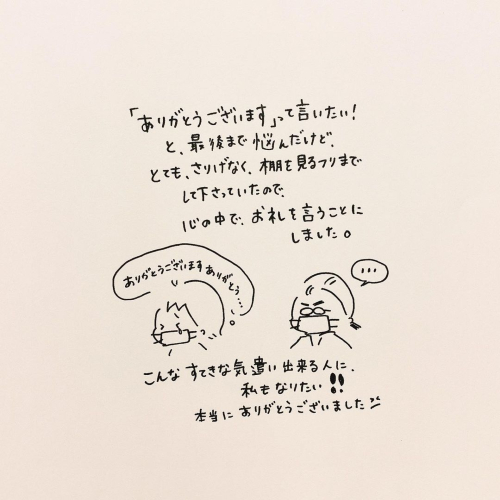 「ありがとうございます」って言いたい!
と、最後まで悩んだけど、
とても、さりげなく、棚を見るフリまで
して下さっていたので、
心の中で、お礼を言うことに
しました。
ありがとうございますありがとう…
…
こんな すてきな気遣い出来る人に、
私もなりたい!!
本当に ありがとうございました